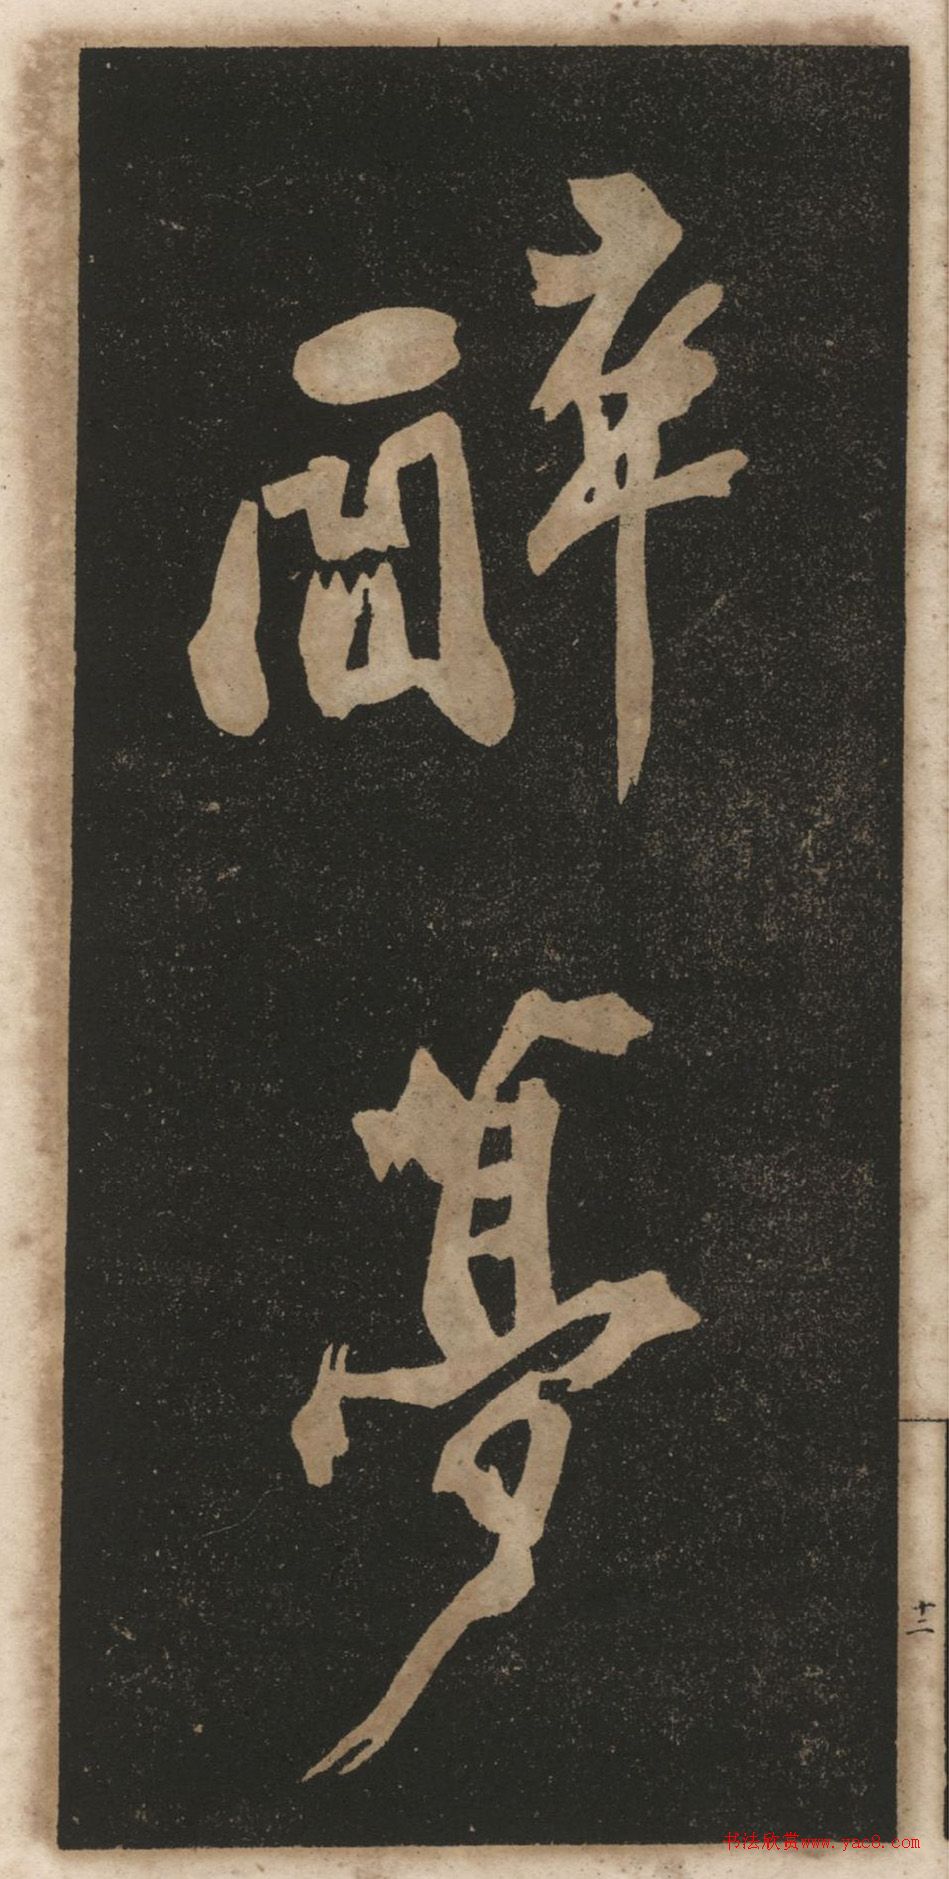 醉夢
十二
书法欣赏www.yac8.com